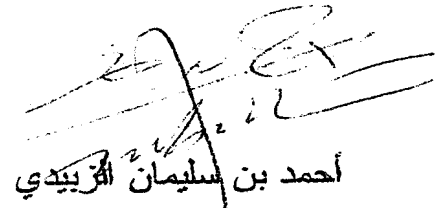 أحمد بن سليمان الزبيدي